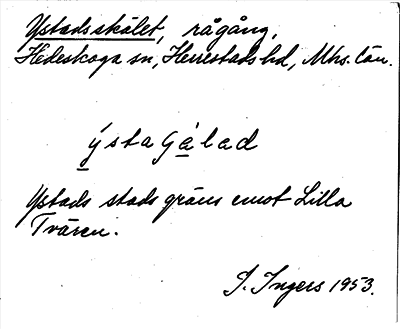 Ystadsskälet, rågång,
Hedeskoga sn, Herrestads hd, Mhs. län.
ýstagàlad
Ystads stads gräns emot Lilla
Tvären.
I. Ingers 1953.